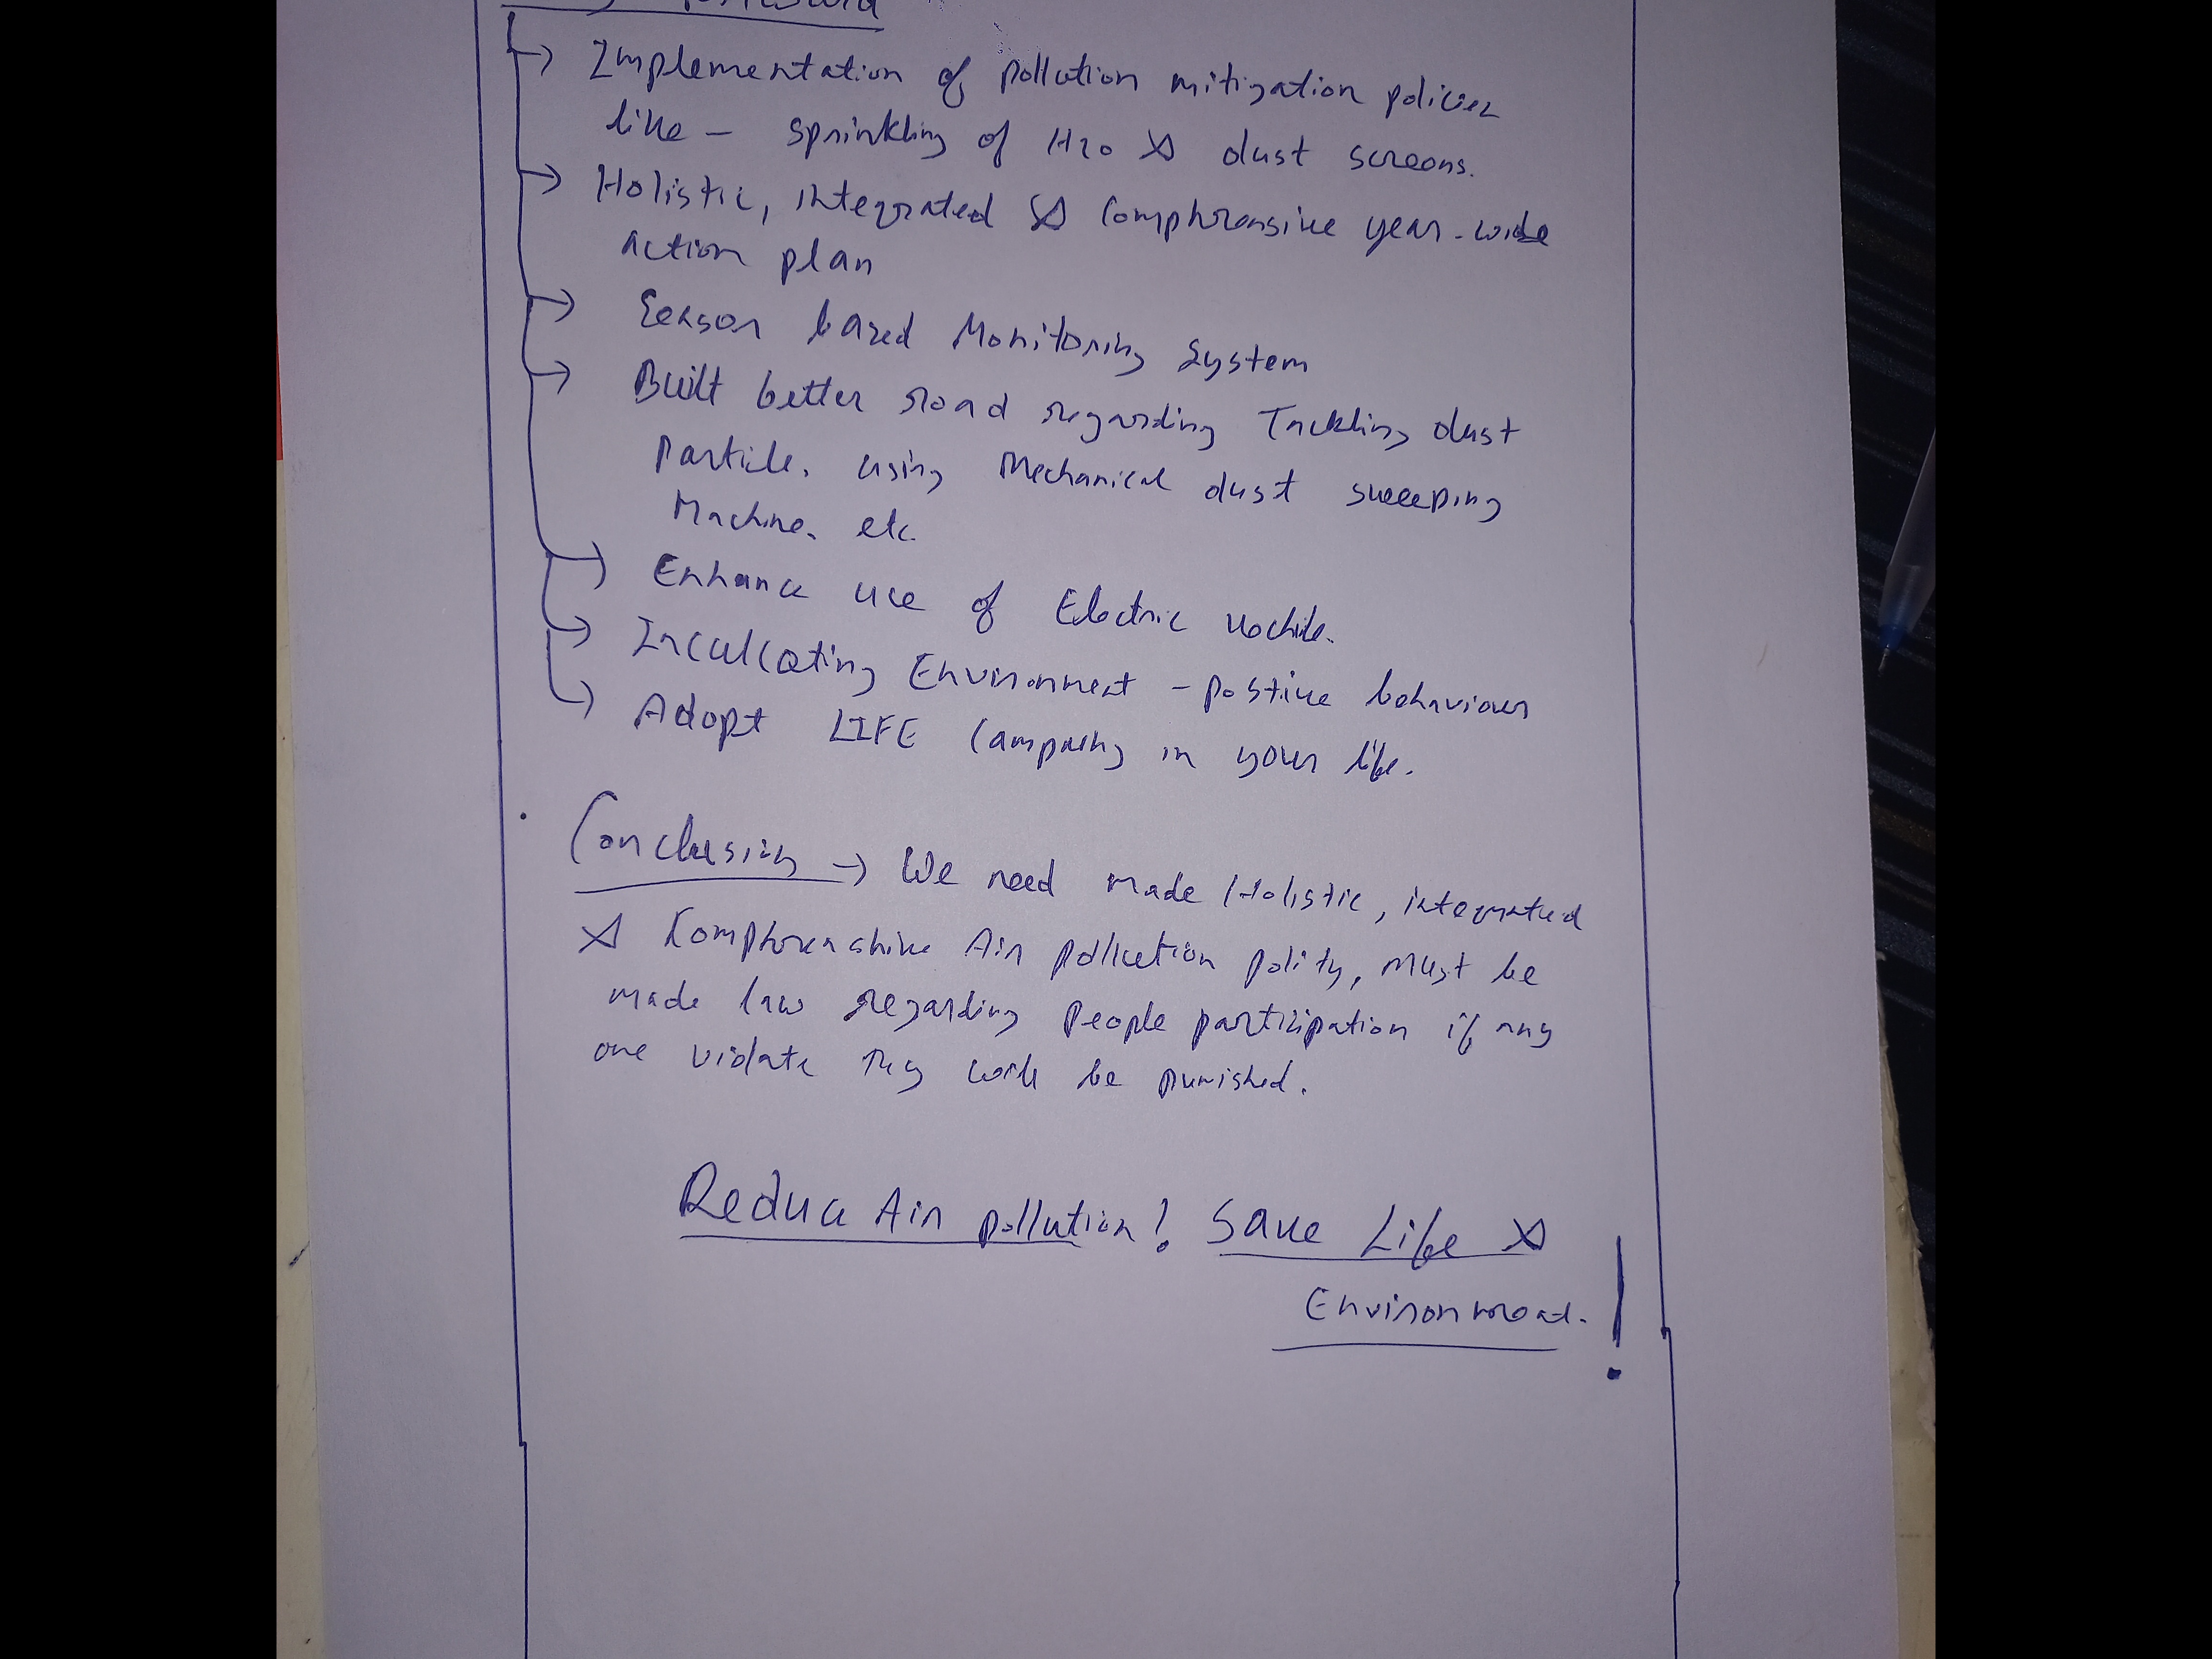 Implementation of pollution mitigation policies
like - sprinkling of H2O & dust screens.
Holistic, integrated & Comphrensive year-wide
action plan
Season based Monitoring System
Built better road regarding Tackling dust
Particle. using Mechanical dust sweeping
Machine. etc.
Enhance use of Electric
Inculcating Environment - postive behaviour
Adopt LIFE Campaing in your life.
Conclusion → We need made Holistic, integrated
& Air pollution polity, Must be
made law regarding people participation if any
one violate they will be punished.
Reduce Air pollution! Save Life &
Environment. !